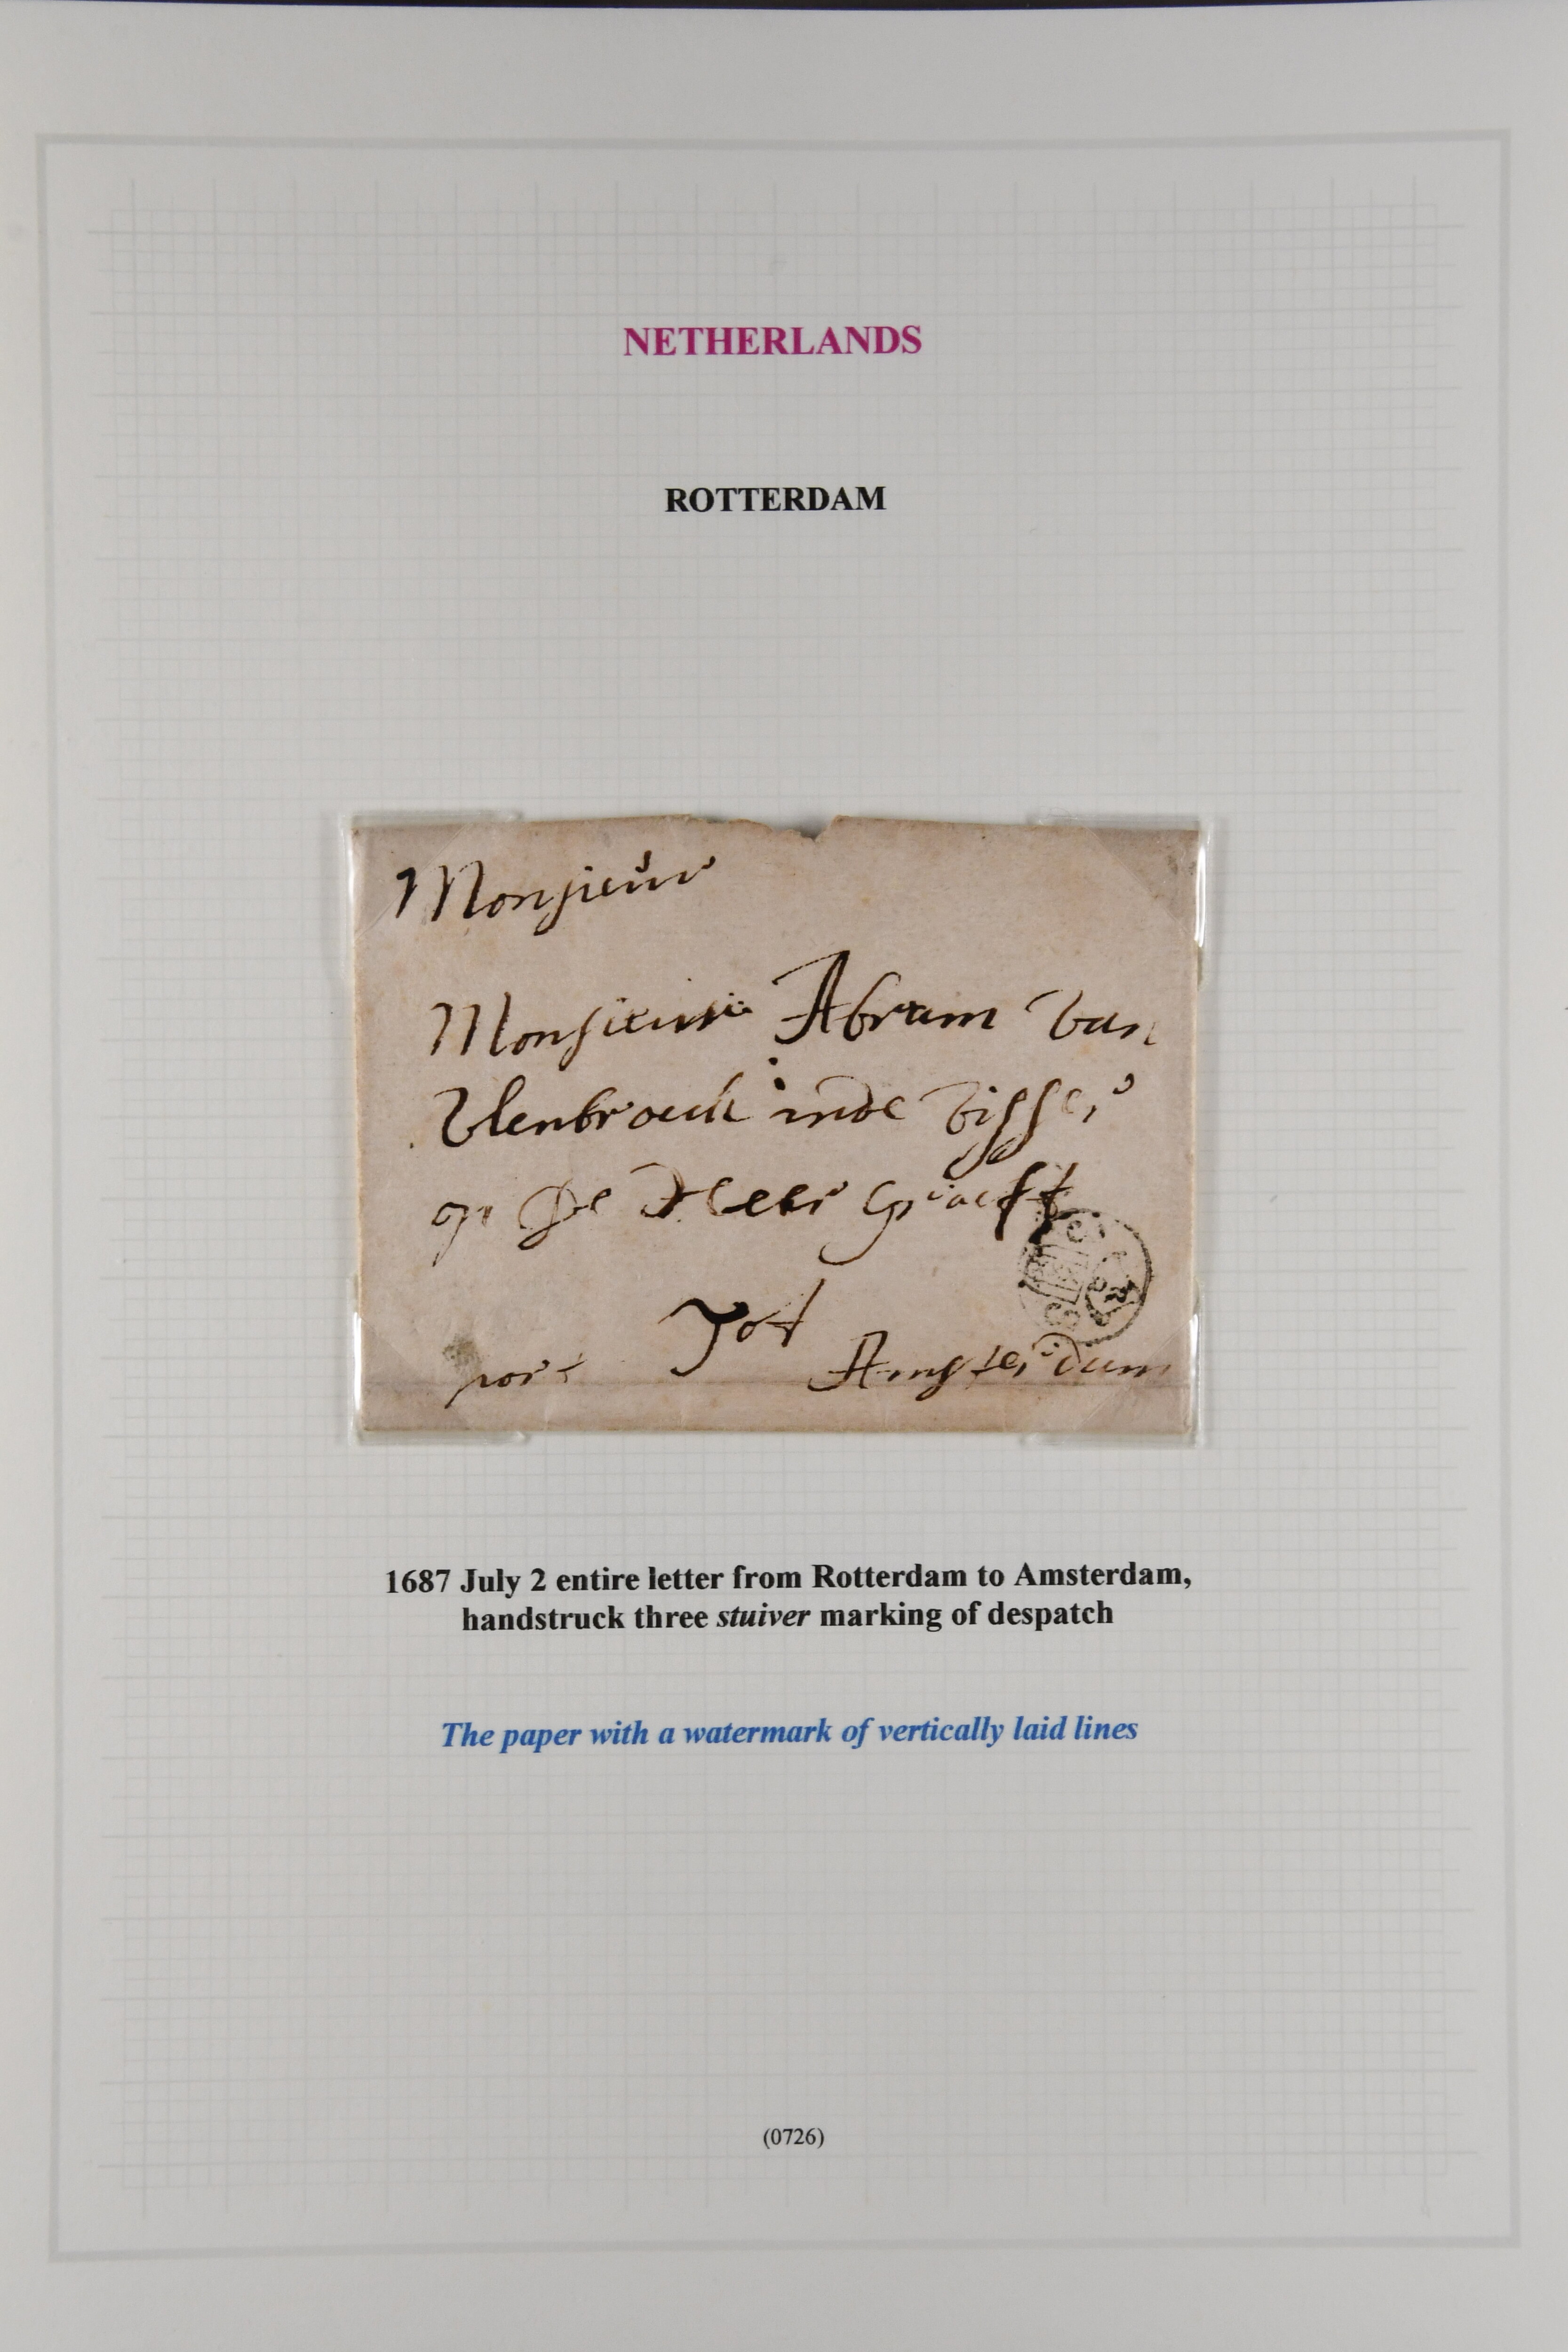 NETHERLANDS
ROTTERDAM
Monsieur
Monsieur Abram Van
Vlenbroeck inde Visser
op De Heer Graeft
Tot
port Amsterdam
1687 July 2 entire letter from Rotterdam to Amsterdam,
handstruck three stuiver marking of despatch
The paper with a watermark of vertically laid lines
(0726)